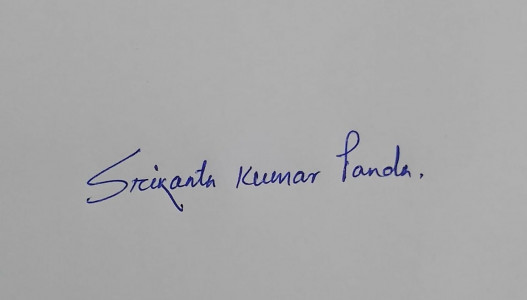 Srikanta Kumar Panda.